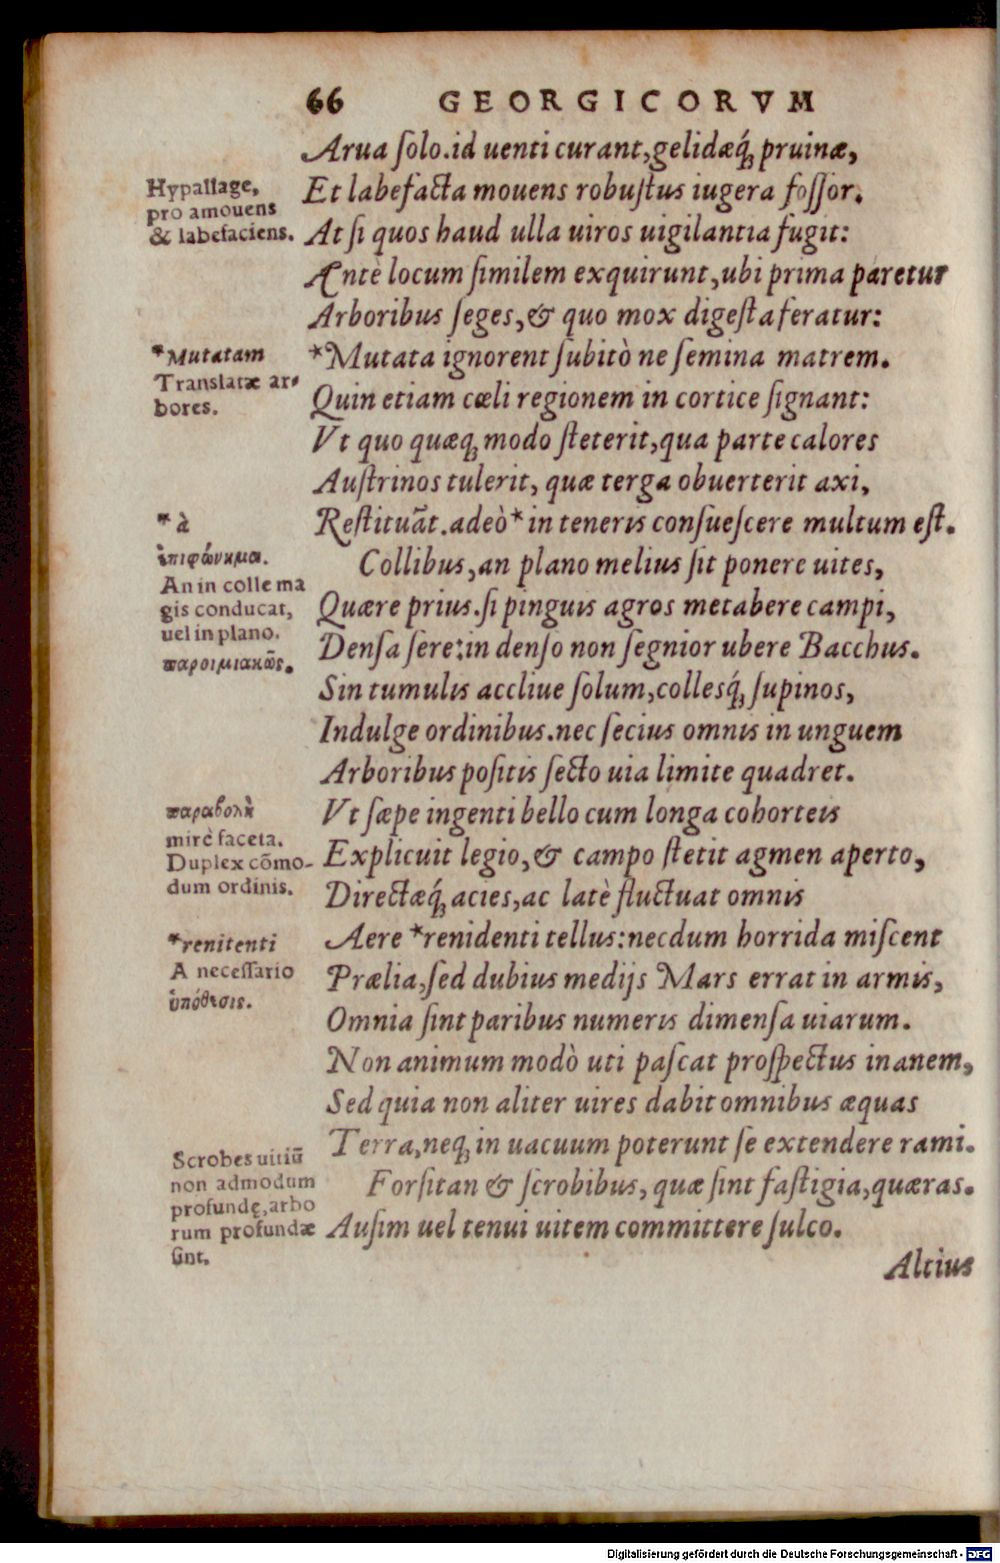 66 GEORGICORVM
Arua ſolo.id uenti curant,gelidæq́ꝫ pruinæ,
Et labefacta mouens robuſtus iugera foſſor.
At ſi quos haud ulla uiros uigilantia fugit:
Antè locum ſimilem exquirunt,ubi prima paretur
Arboribus ſeges,& quo mox digeſta feratur:
*Mutata ignorent ſubitò ne ſemina matrem.
Quin etiam cœli regionem in cortice ſignant:
Vt quo quæqꝫ modo ſteterit,qua parte calores
Auſtrinos tulerit, quæ terga obuerterit axi,
Reſtituãt.adeò *in teneris conſueſcere multum eſt.
Collibus,an plano melius ſit ponere uites,
Quære prius.ſi pinguis agros metabere campi,
Denſa ſere:in denſo non ſegnior ubere Bacchus.
Sin tumulis accliue ſolum,collesq́ꝫ ſupinos,
Indulge ordinibus.nec ſecius omnis in unguem
Arboribus poſitis ſecto uia limite quadret.
Vt ſæpe ingenti bello cum longa cohorteis
Explicuit legio,& campo ſtetit agmen aperto,
Directæq́ꝫ acies,ac latè fluctuat omnis
Aere *renidenti tellus:necdum horrida miſcent
Prælia,ſed dubius medijs Mars errat in armis,
Omnia ſint paribus numeris dimenſa uiarum.
Non animum modò uti paſcat proſpectus inanem,
Sed quia non aliter uires dabit omnibus æquas
Terra,neqꝫ in uacuum poterunt ſe extendere rami.
Forſitan & ſcrobibus, quæ ſint faſtigia,quæras.
Auſim uel tenui uitem committere ſulco.
Altius
Hypallage,
pro amouens
& labefaciens.
*Mutatam
Translatæ ar-
bores.
*à
ἐπιφώνημα.
An in colle ma
gis conducat,
uel in plano.
παροιμιακῶς.
παραβολὴ
mirè faceta.
Duplex cõmo-
dum ordinis.
*renitenti
A neceſſario
ὑπόθεσις.
Scrobes uitiũ
non admodum
profundę,arbo
rum profundæ
ſint.
Digitalisierung gefördert durch die Deutsche Forschungsgemeinschaft - DFG